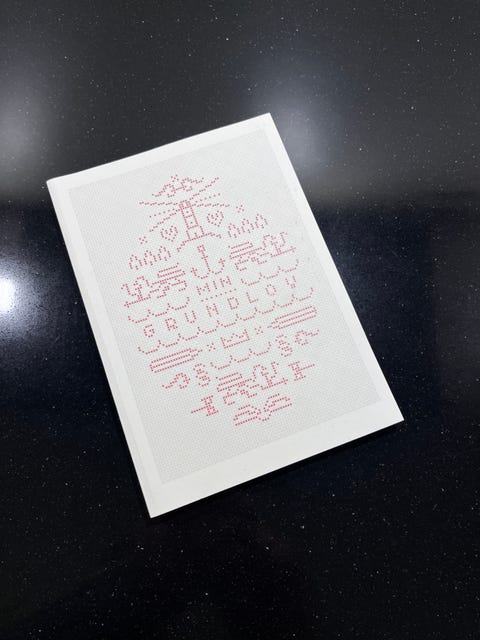 MIN
GRUNDLOV